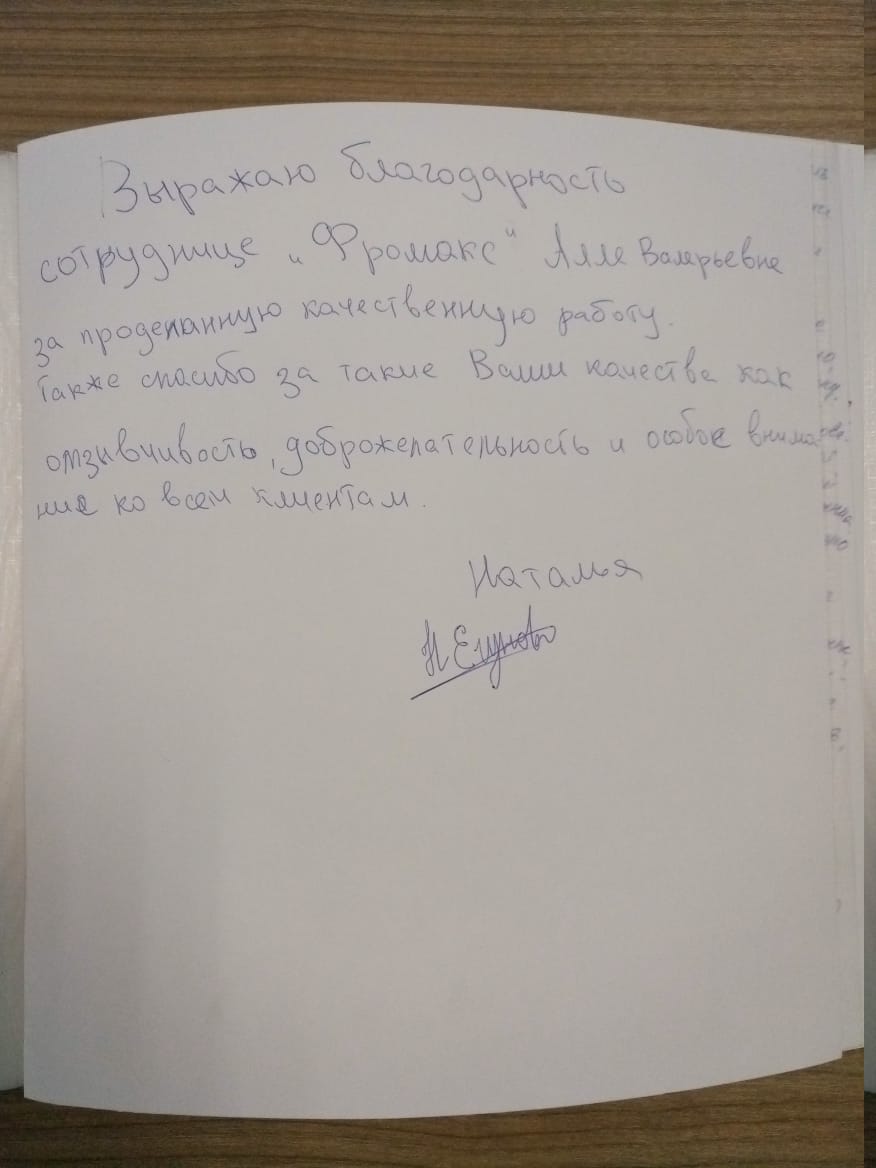 Выражаю благодарность
сотруднице "Фромакс" Алле Валерьевне
за проделанную качественную работу.
Также спасибо за такие Ваши качества как
отзывчивость, доброжелательность и особое внима-
ние ко всем клиентам.
Наталья